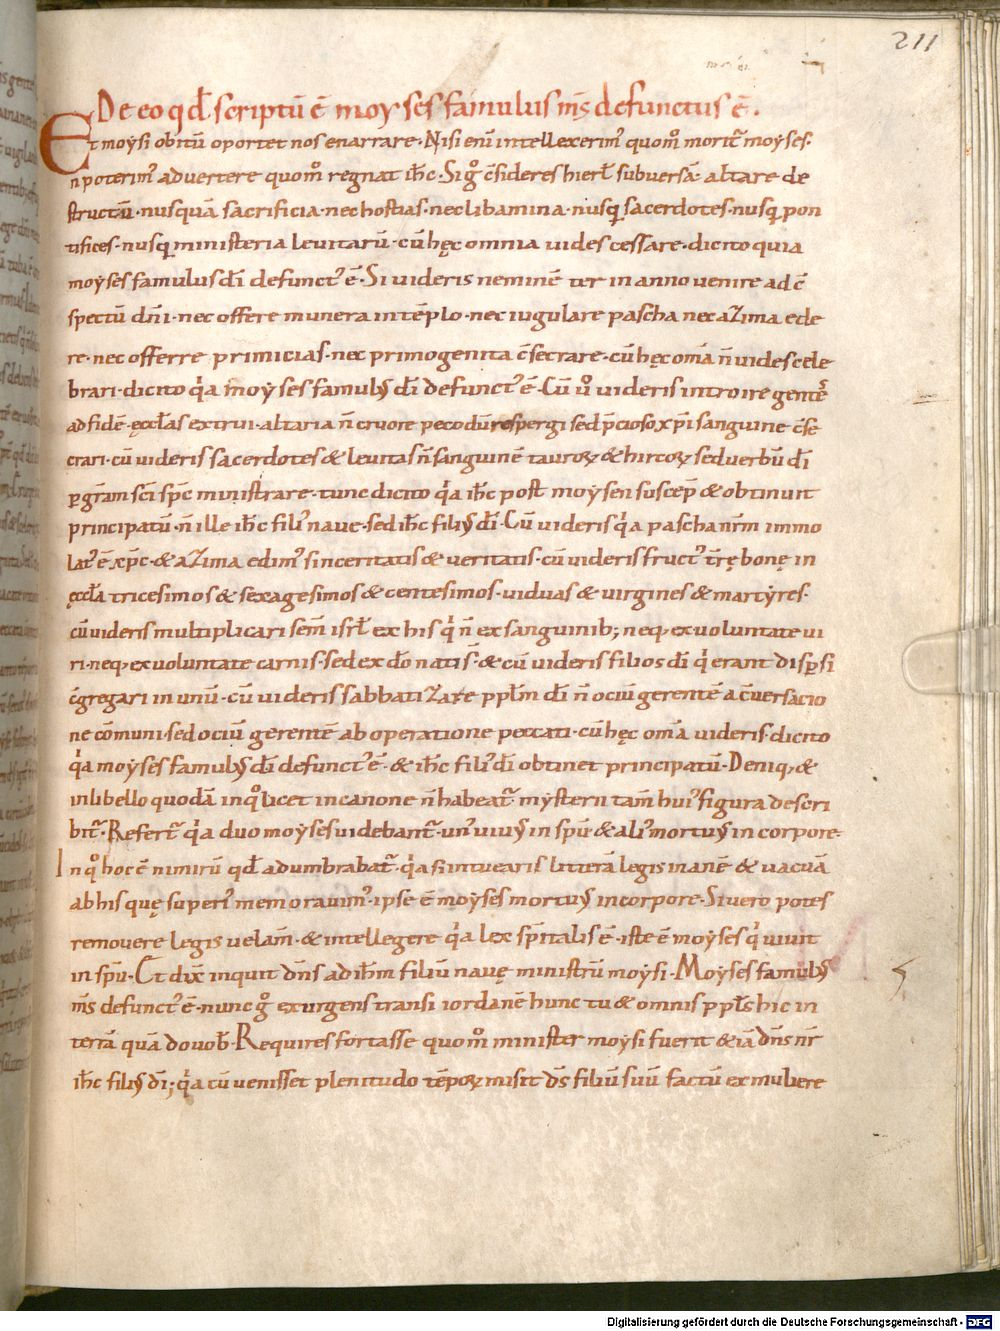 211
De eo qđ scriptū ē moyses famulus m̄s defunctus ē.
Et moysi obitū oportet nos enarrare. Nisi eni᷑ intellexerim᷒ quom̊ morit᷑ moyses.
n̄ poterim᷒ advertere quom̊ regnat ih̄c. Si g̊ c̄sideres hierł subversā. altare de
structū. nusquā sacrificia. nec hostias. nec libamina. nusq̄ sacerdotes. nusq̄ pon
tifices. nusq̄ ministeria levitarū. cū hęc omnia vides cessare. dicito quia
moyses famulus dī defunct᷒ ē. Si videris neminē ter in anno venire ad c̄
spectū dn̄i. nec offere munera in tēplo. nec iugulare pascha nec azima ede
re. nec offerre primicias. nec primogenita c̄secrare. cū hęc om̄a n̄ vides cele
brari. dicito q̇a moyses famul᷒ dī defunct᷒ ē. Cū v̊ videris introire gentē
ad fidē. ęccl̄as extrui. altaria n̄ cruore pecodū respergi sed p̄cioso xp̄i sanguine c̄se
crari. cū videris sacerdotes & levitas n̄ sanguinē tauroꝝ & hircoꝝ sed verbū dī
ꝑ gr̄am sc̄i sp̄c ministrare. tunc dicito q̇a ih̄c post moysen suscep̄ & obtinuit
principatū. n̄ ille ih̄c fili᷒ nave. sed ih̄c fili᷒ dī. Cū videris q̇a pascha nr̄m immo
lat᷒ ē xp̄c. & azima edim᷒ sinceritatis & veritatis. cū videris fruct᷒ tr̄ę bonę in
ęccl̄a tricesimos & sexagesimos & centesimos. viduas & virgines & martyres.
cū videris multiplicari sem̄ isrł ex his q̇ n̄ ex sanguinib; neq; ex voluntate vi
ri. neq; ex voluntate carnis. sed ex dō nati s̄. & cū videris filios dī q̇ erant disꝑsi
c̄gregari in unū. cū videris sabbatizare ppl̄m dī n̄ ociū gerentē a c̄versacio
ne cōmuni. sed ociū gerentē ab operatione peccati. cū hęc om̄a videris. dicito
q̇a moyses famul᷒ dī defunct᷒ ē. & ih̄c fili᷒ dī obtinet principatū. Deniq; &
in libello quodā in q̊ licet in canone n̄ habeat᷑. mysterii tam̄ hui᷒ figura descri
bit᷑. Refert᷑ q̇a duo moyses videbant᷑. un᷒ viv᷒ in sp̄u & ali᷒ mortu᷒ in corpore.
In q̊ hoc ē nimirū qđ adumbrabat᷑. q̇a si intuearis litterā legis inanē & vacuā
ab his quę superi᷒ memoravim᷒. ipse ē moyses mortu᷒ in corpore. Si vero potes
removere legis velam̄. & intellegere q̇a lex sp̄italis ē. iste ē moyses q̇ vivit
in sp̄u. Et dix̄ inquit dn̄s ad ih̄m filiū navę ministrū moysi. Moyses famul᷒
m̄s defunct᷒ ē. nunc g̊ exurgens transi iordanē hunc tu & omnis ppl̄s hic in
terrā quā do vob̄. Requires fortasse quom̊ minister moysi fuerit & iā dn̄s nr̄
ih̄c fili᷒ dī; q̇a cū venisset plenitudo tēpoꝝ misit d̄s filiū suū factū ex muliere
Digitalisierung gefördert durch die Deutsche Forschungsgemeinschaft - DFG